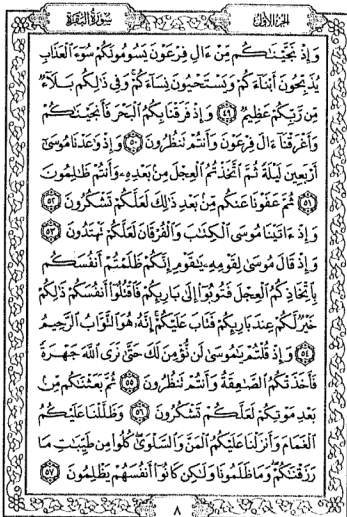 الجزء الأول سورة البقرة
وَإِذْ نَجَّيْنَٰكُم مِّنْ ءَالِ فِرْعَوْنَ يَسُومُونَكُمْ سُوٓءَ ٱلْعَذَابِ
يُذَبِّحُونَ أَبْنَآءَكُمْ وَيَسْتَحْيُونَ نِسَآءَكُمْ وَفِى ذَٰلِكُم بَلَآءٌ
مِّن رَّبِّكُمْ عَظِيمٌ ٤٩ وَإِذْ فَرَقْنَا بِكُمُ ٱلْبَحْرَ فَأَنجَيْنَٰكُمْ
وَأَغْرَقْنَآ ءَالَ فِرْعَوْنَ وَأَنتُمْ تَنظُرُونَ ٥٠ وَإِذْ وَٰعَدْنَا مُوسَىٰٓ
أَرْبَعِينَ لَيْلَةً ثُمَّ ٱتَّخَذْتُمُ ٱلْعِجْلَ مِنۢ بَعْدِهِۦ وَأَنتُمْ ظَٰلِمُونَ
٥١ ثُمَّ عَفَوْنَا عَنكُم مِّنۢ بَعْدِ ذَٰلِكَ لَعَلَّكُمْ تَشْكُرُونَ ٥٢
وَإِذْ ءَاتَيْنَا مُوسَى ٱلْكِتَٰبَ وَٱلْفُرْقَانَ لَعَلَّكُمْ تَهْتَدُونَ ٥٣
وَإِذْ قَالَ مُوسَىٰ لِقَوْمِهِۦ يَٰقَوْمِ إِنَّكُمْ ظَلَمْتُمْ أَنفُسَكُم
بِٱتِّخَاذِكُمُ ٱلْعِجْلَ فَتُوبُوٓا۟ إِلَىٰ بَارِئِكُمْ فَٱقْتُلُوٓا۟ أَنفُسَكُمْ ذَٰلِكُمْ
خَيْرٌ لَّكُمْ عِندَ بَارِئِكُمْ فَتَابَ عَلَيْكُمْ إِنَّهُۥ هُوَ ٱلتَّوَّابُ ٱلرَّحِيمُ
٥٤ وَإِذْ قُلْتُمْ يَٰمُوسَىٰ لَن نُّؤْمِنَ لَكَ حَتَّىٰ نَرَى ٱللَّهَ جَهْرَةً
فَأَخَذَتْكُمُ ٱلصَّٰعِقَةُ وَأَنتُمْ تَنظُرُونَ ٥٥ ثُمَّ بَعَثْنَٰكُم مِّنۢ
بَعْدِ مَوْتِكُمْ لَعَلَّكُمْ تَشْكُرُونَ ٥٦ وَظَلَّلْنَا عَلَيْكُمُ
ٱلْغَمَامَ وَأَنزَلْنَا عَلَيْكُمُ ٱلْمَنَّ وَٱلسَّلْوَىٰ كُلُوا۟ مِن طَيِّبَٰتِ مَا
رَزَقْنَٰكُمْ وَمَا ظَلَمُونَا وَلَٰكِن كَانُوٓا۟ أَنفُسَهُمْ يَظْلِمُونَ ٥٧
٨